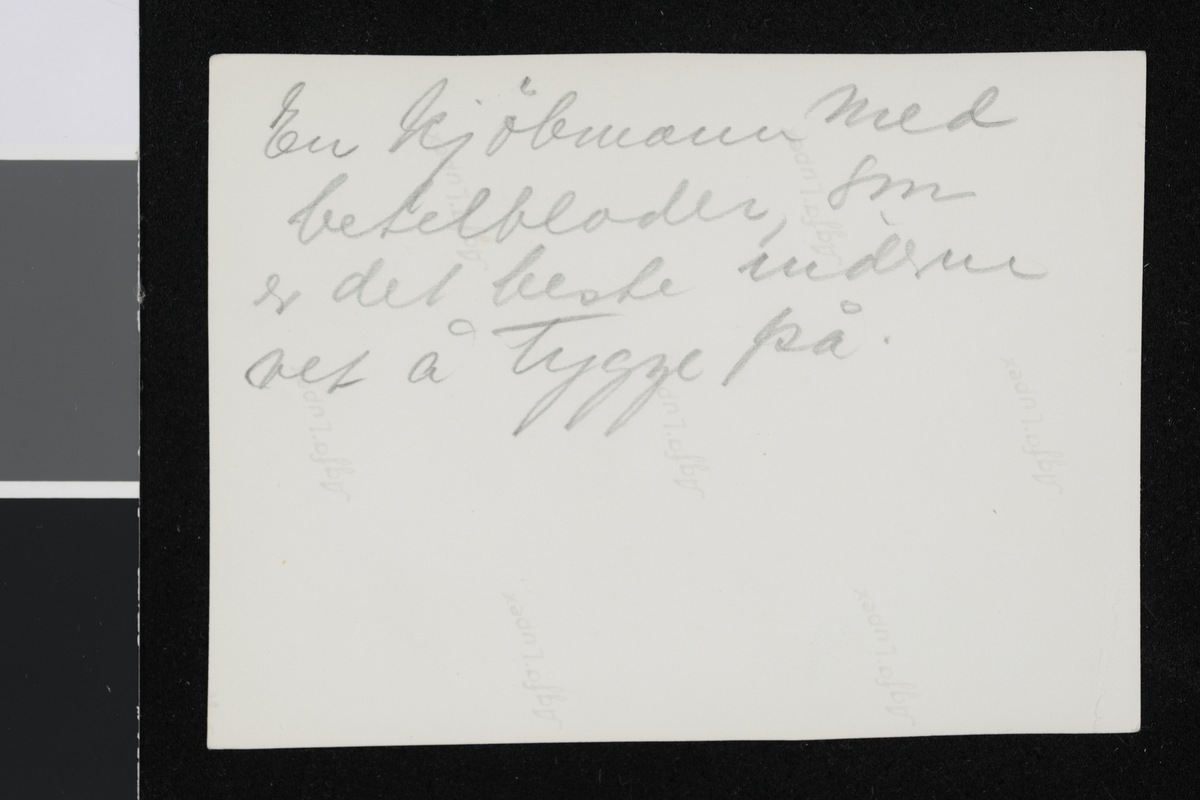 En kjöbmann med
betelblader, som
er det beste inderne
vet å tygge på.
Agfa-Lupex
Agfa-Lupex
Agfa-Lupex
Agfa-Lupex
Agfa-Lupex